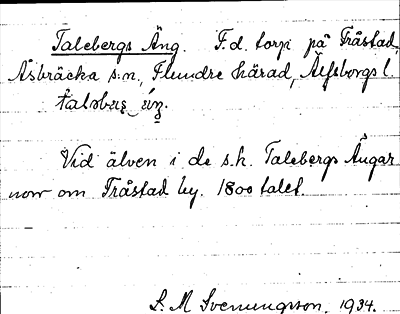 Talebergs Äng. F.d. torp på Tråstad,
Åsbräcka s:n, Flundre härad, Älfsborgs l.
Vid älven i de s.k. Talebergs Ängar
norr om Tråstad by. 1800 talet
S. M. Svenungsson, 1934.